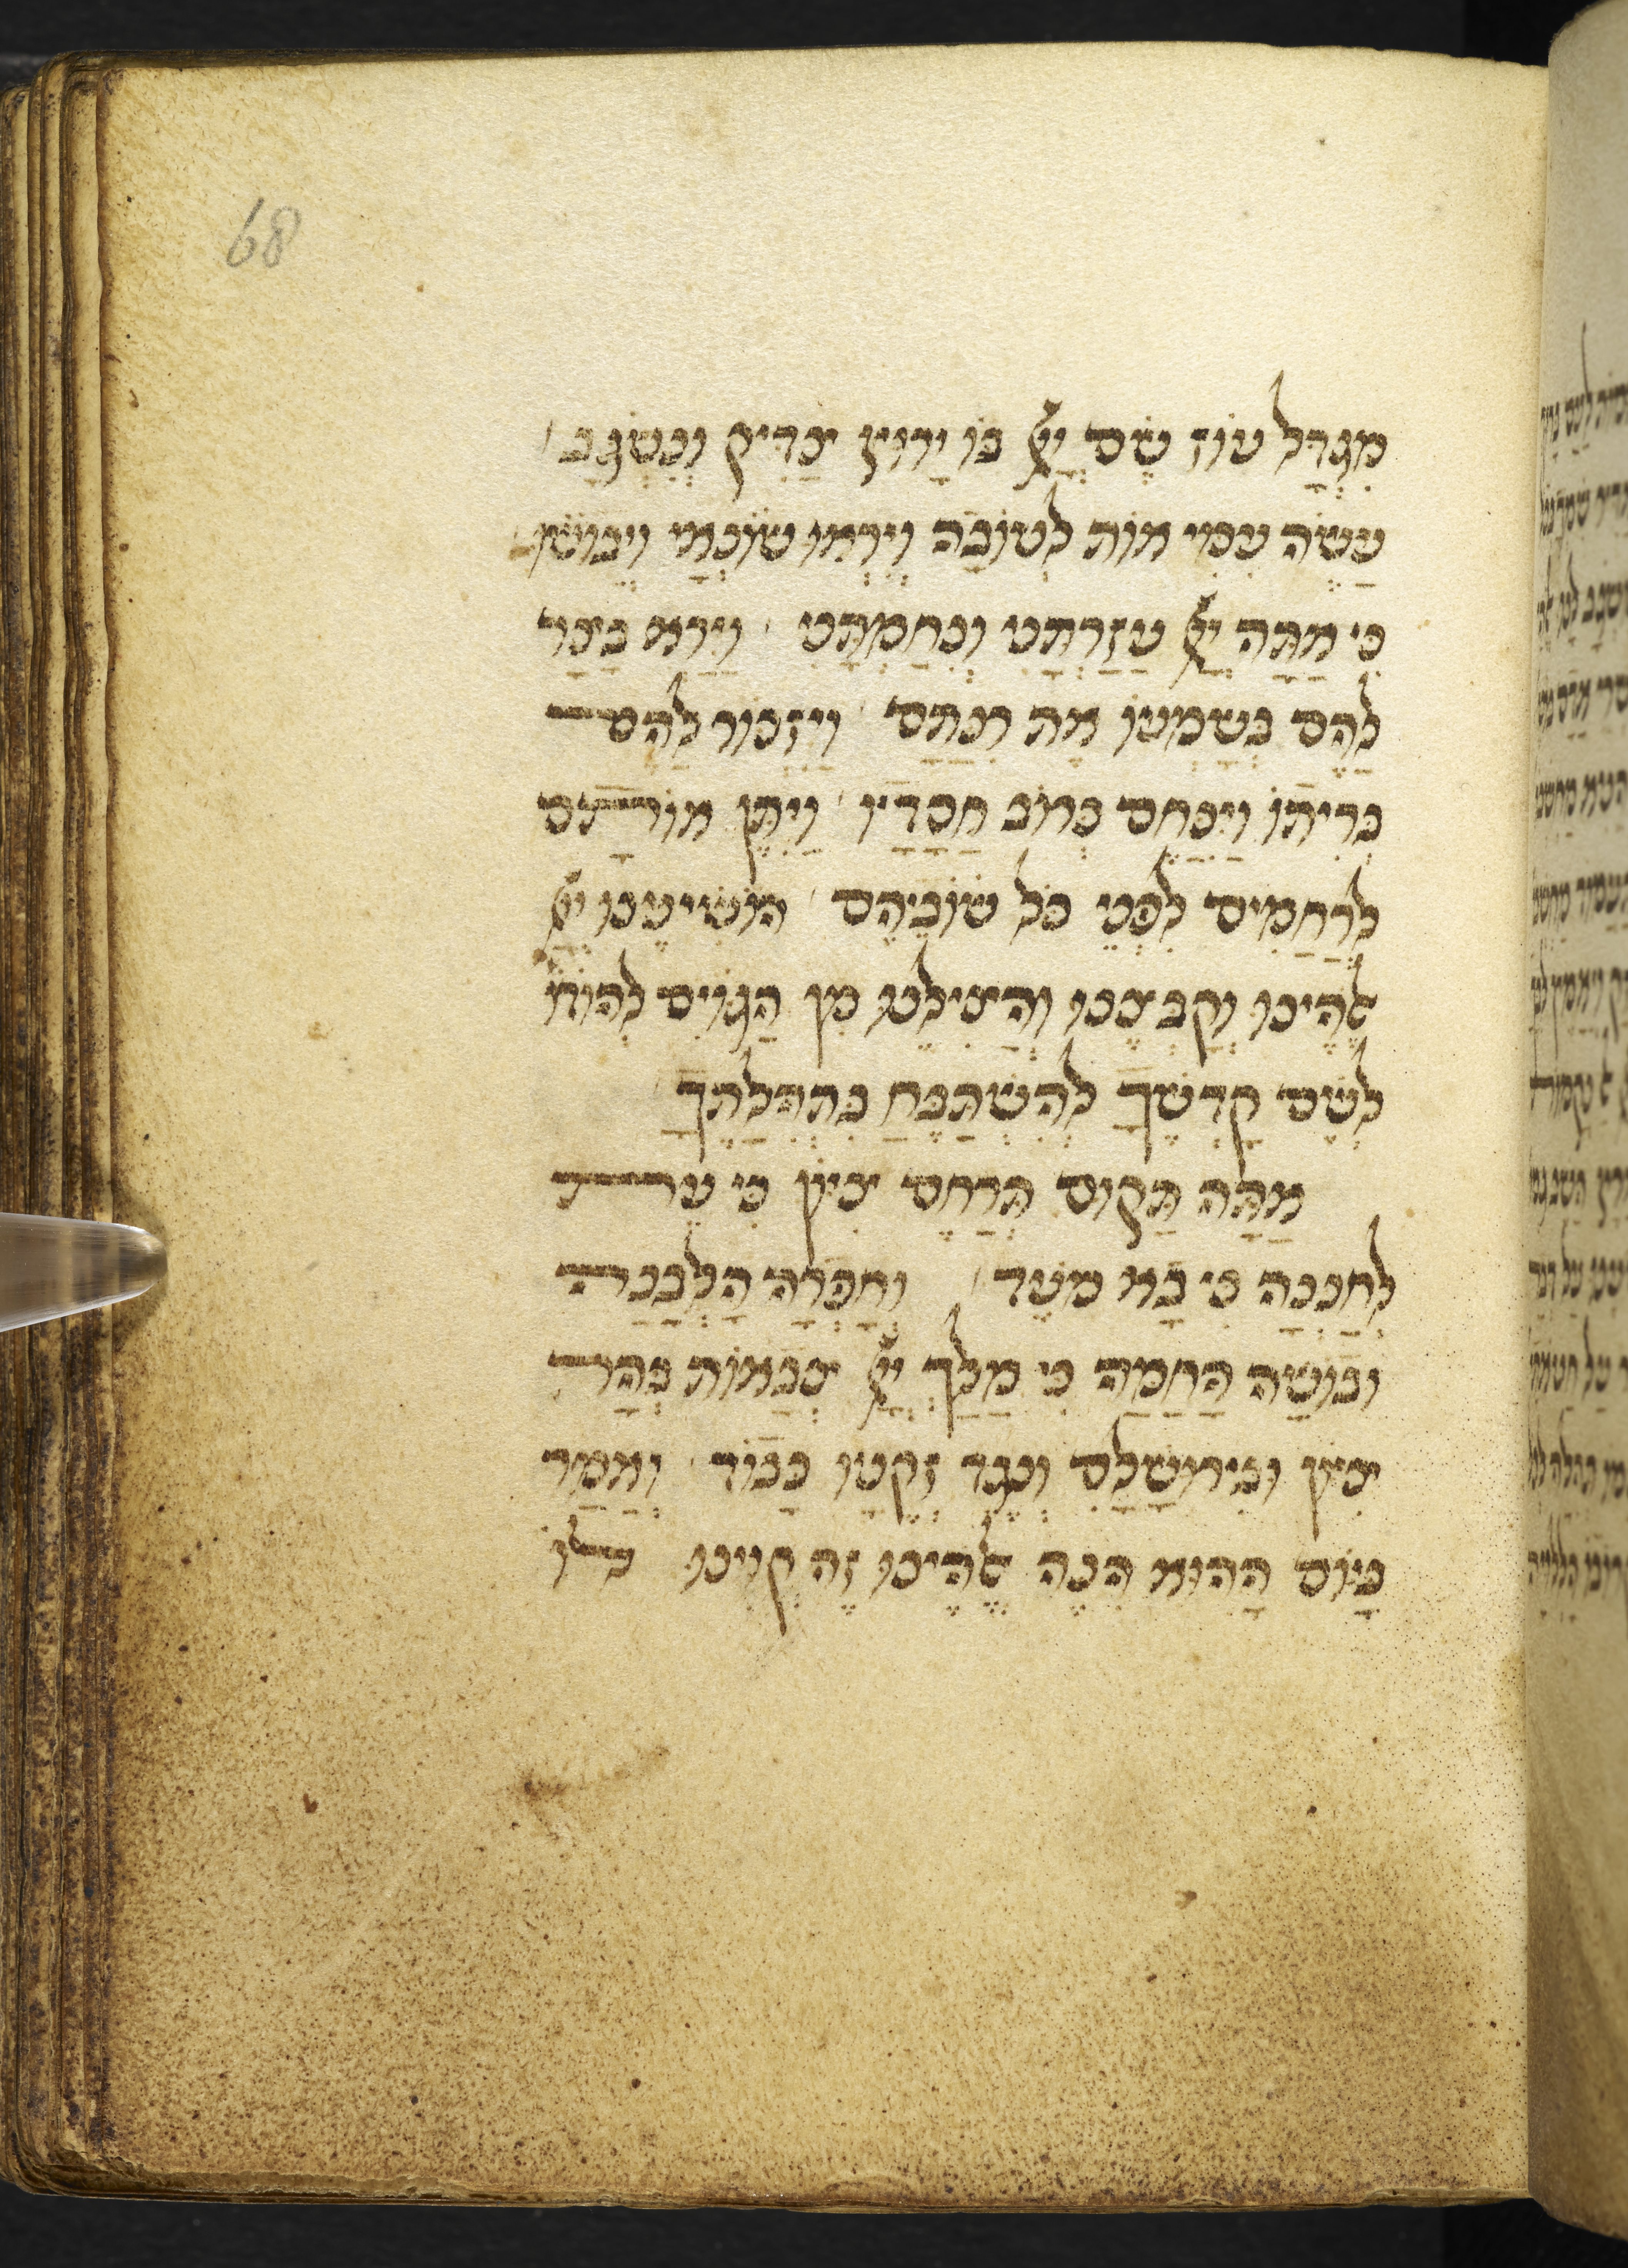 68
מִגְדָּל עוֹז שֵׁם יְיָ בּוֹ יָרוּץ צַדִּיק וְנִשְׂגָּב
עֲשֵׂה עִמִּי אוֹת לְטוֹבָה וְיִרְאוּ שׂוֹנְאַי וְיֵבוֹשׁוּ
כִּי אַתָּה יְיָ עֲזַרְתַּנִי וְנִחַמְתָּנִי וַיַּרְא בַּצַּר
לָהֶם בְּשָׁמְעוֹ אֶת רִנָּתָם וַיִּזְכּוֹר לָהֶם
בְּרִיתוֹ וַיִּנָּחֵם כְּרוֹב חֲסָדָיו וַיִּתֵּן אוֹתָם
לְרַחֲמִים לִפְנֵי כָּל שׁוֹבֵיהֶם הוֹשִׁיעֵנוּ יְיָ
אֱלֹהֵינוּ וְקַבְּצֵנוּ וְהַצִּילֵנוּ מִן הַגּוֹיִם לְהוֹדוֹת
לְשֵׁם קָדְשֶׁךָ לְהִשְׁתַּבֵּחַ בִּתְהִלָּתֶךָ
אַתָּה תָקוּם תְּרַחֵם צִיּוֹן כִּי עֵת
לְחֶנְנָהּ כִּי בָא מוֹעֵד וְחָפְרָה הַלְּבָנָה
וּבוֹשָׁה הַחַמָּה כִּי מָלַךְ יְיָ צְבָאוֹת בְּהַר
צִיּוֹן וּבִירוּשָׁלַם וְנֶגֶד זְקֵנָיו כָּבוֹד וְאָמַר
בַּיּוֹם הַהוּא הִנֵּה אֱלֹהֵינוּ זֶה קִוִּינוּ לוֹ